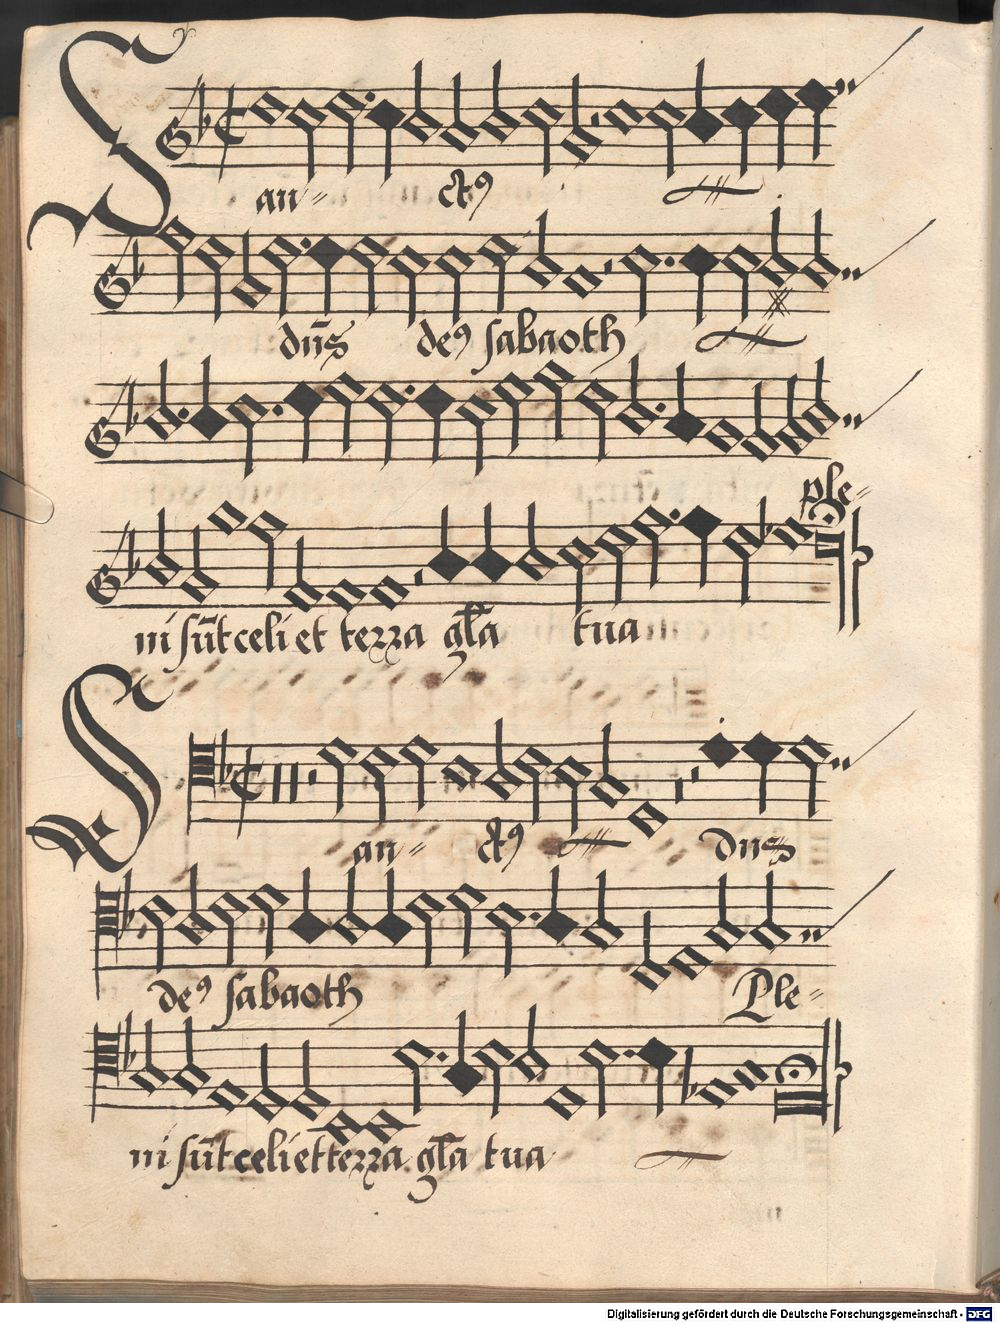 San- ctꝯ
dn̄s deꝯ sabaoth
ple-
ni sūt celi et terra gl̄a tua
San- ctꝯ dns
deꝯ sabaoth Ple-
ni sūt celi et terra gl̄a tua
Digitalisierung gefördert durch die Deutsche Forschungsgemeinschaft - DFG